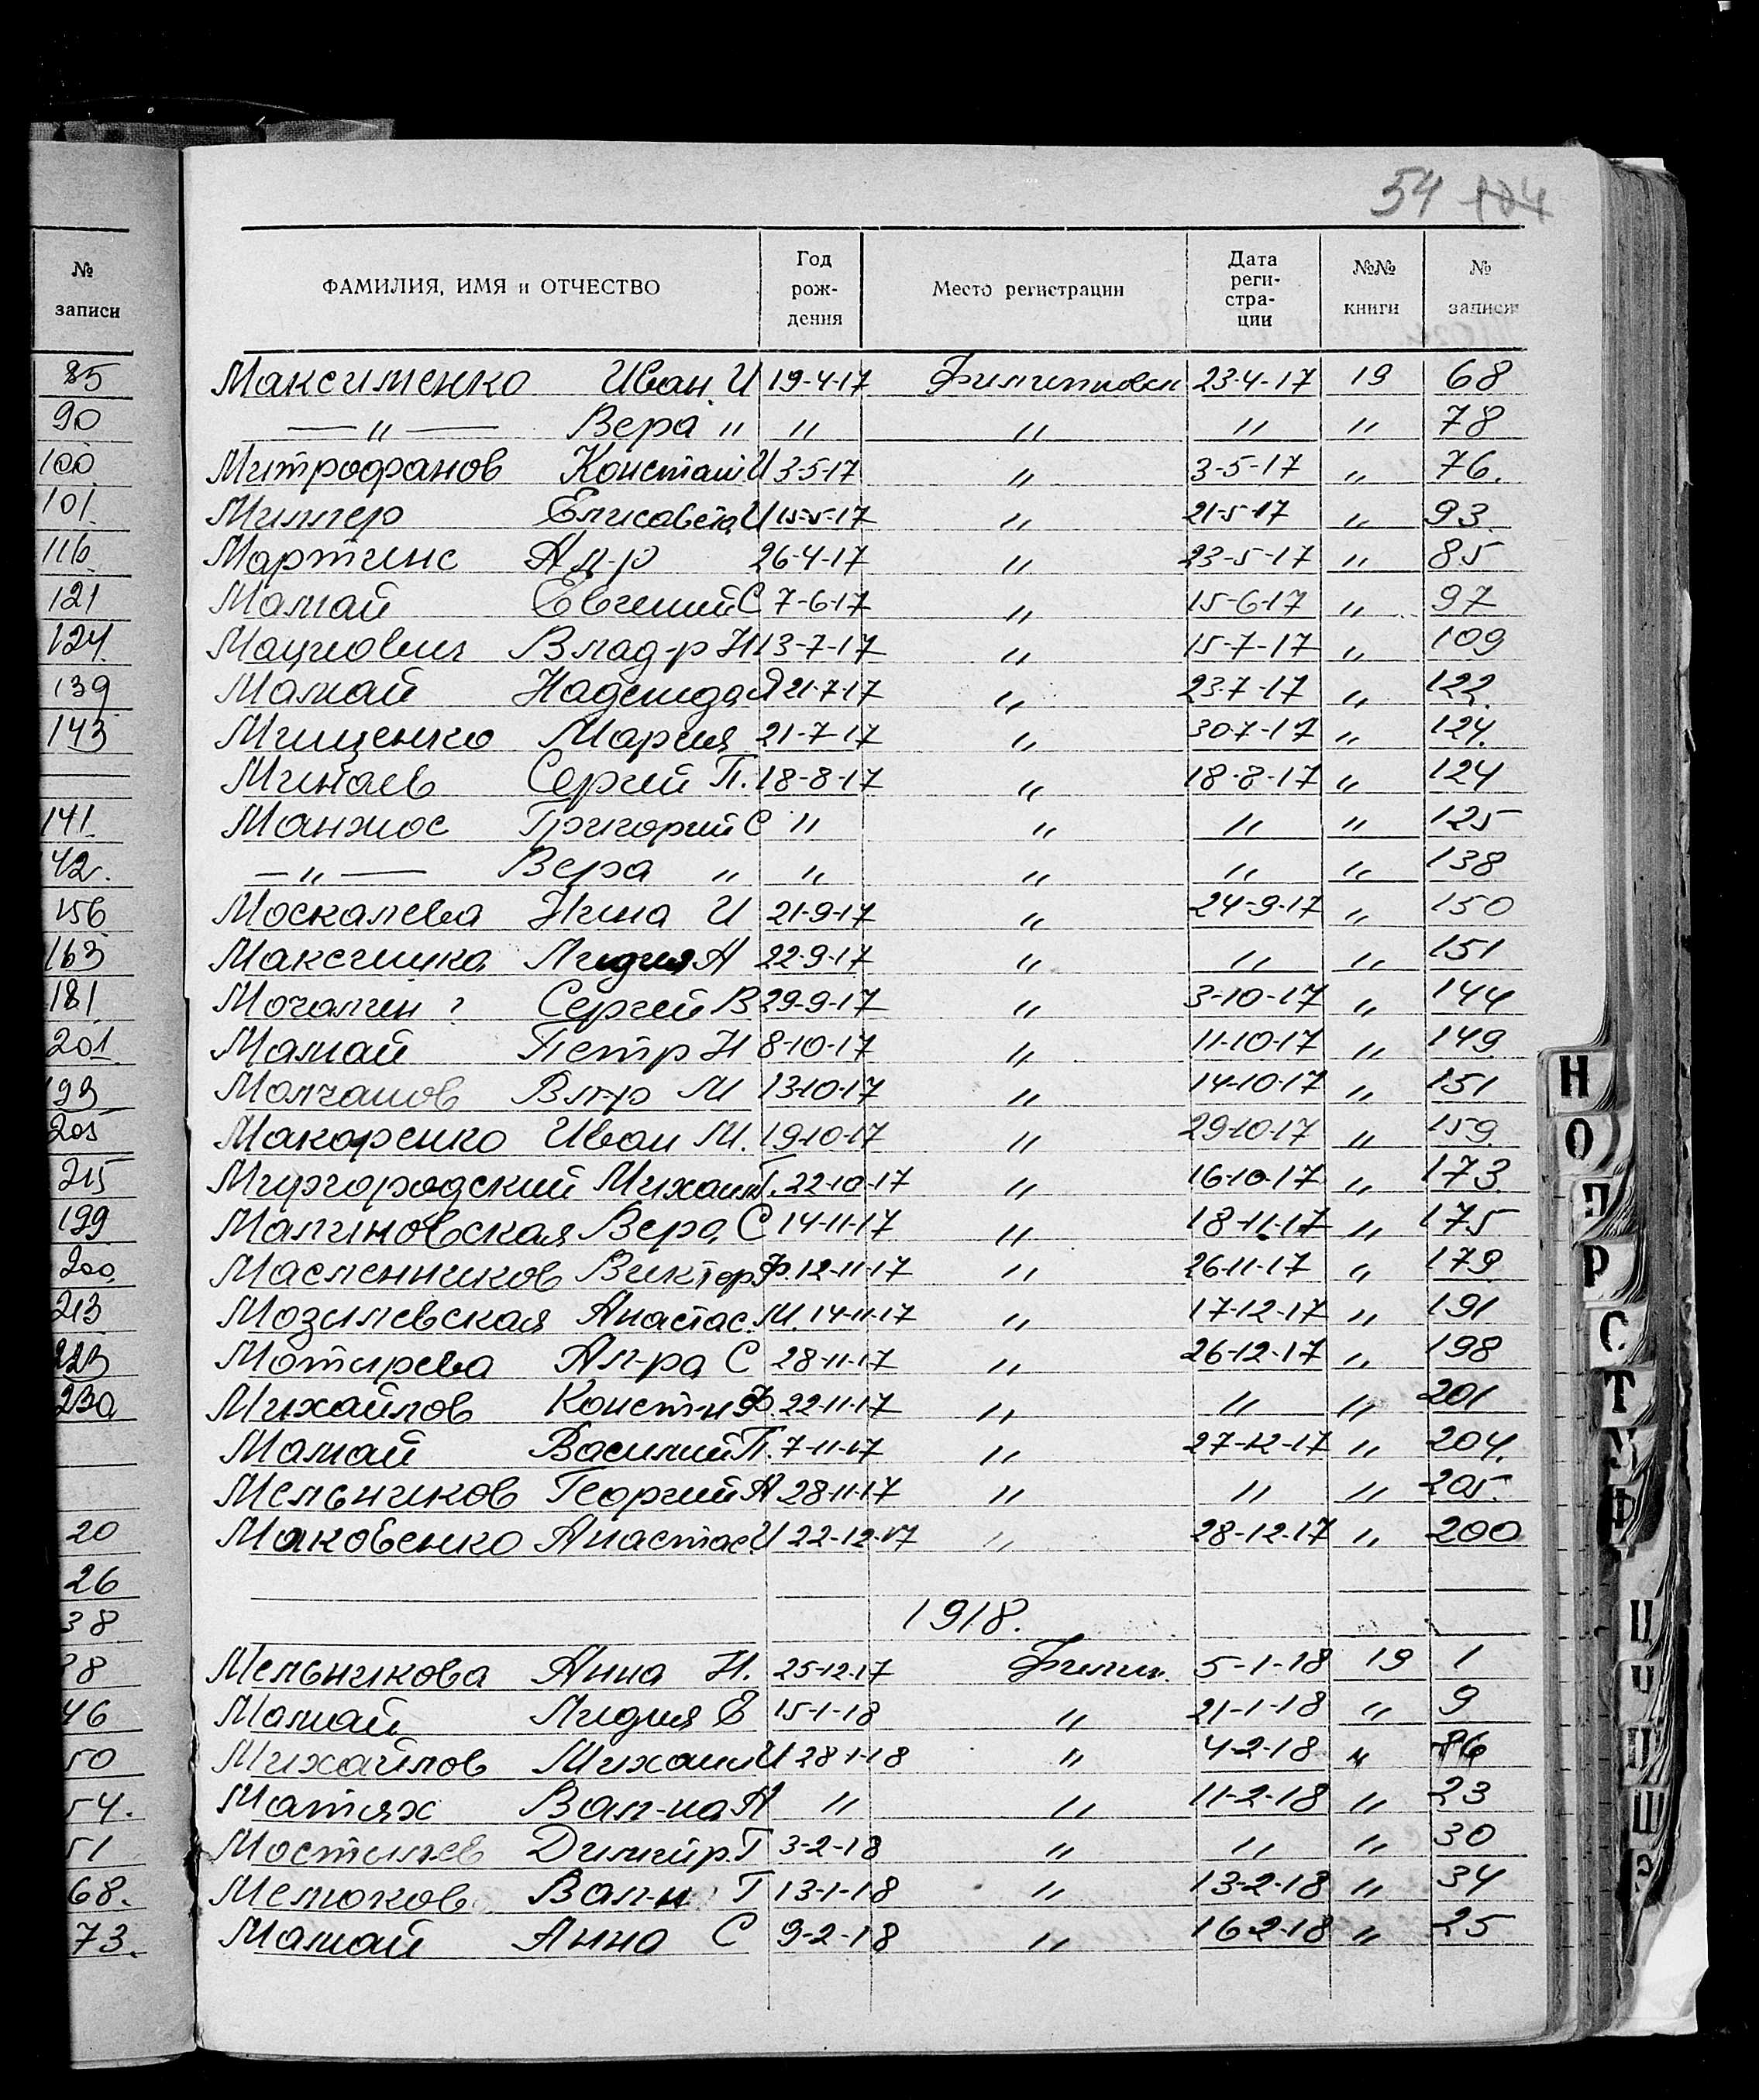 54 104
№ записи
ФАМИЛИЯ, ИМЯ и ОТЧЕСТВО Год рож- дения Место регистрации Дата реги- стра- ции №№ книги № записи
85 Максименко Иван И 19-4-17 Филипповск 23-4-17 19 68
90 —〃— Вера 〃 〃 〃 〃 〃 78
100 Митрофанов Констан И 3-5-17 〃 3-5-17 〃 76.
101 Миллер Елисавета И 15-5-17 〃 21-5-17 〃 93.
116 Мартинс Ал-р 26-4-17 〃 23-5-17 〃 85
121 Мамай Евгений С 7-6-17 〃 15-6-17 〃 97
124. Мацкович Влад-р Н 13-7-17 〃 15-7-17 〃 109
139 Мамай Надежда Я 21-7-17 〃 23-7-17 〃 122.
143 Мищенко Мария 21-7-17 〃 30-7-17 〃 124.
Минаев Сергий П. 18-8-17 〃 18-8-17 〃 124
141 Манжос Григорий С 〃 〃 〃 〃 125
42. —〃— Вера 〃 〃 〃 〃 〃 138
156 Москалева Нина И 21-9-17 〃 24-9-17 〃 150
163 Лидия А 22-9-17 〃 〃 〃 151
181 Мочалин ? Сергей В 29-9-17 〃 3-10-17 〃 144
201 Мамай Петр Н 8-10-17 〃 11-10-17 〃 149
193 Молчанов Вл-р М 13-10-17 〃 14-10-17 〃 151
205 Макаренко Иван М. 19-10-17 〃 29-10-17 〃 159
215 Миргородский Михаил Г. 22-10-17 〃 16-10-17 〃 173
199 Малиновская Вера С 14-11-17 〃 18-11-17 〃 175
200 Масленников Виктор Ф. 12-11-17 〃 26-11-17 〃 179
213 Мозилевская Анастас. М. 14-11-17 〃 17-12-17 〃 191
223 Мотырева Ал-ра С 28-11-17 〃 26-12-17 〃 198
230 Михайлов Конст-н Ф. 22-11-17 〃 〃 〃 201
Мамай Василий П. 7-11-17 〃 27-12-17 〃 204.
Мельников Георгий А 28-11-17 〃 〃 〃 205.
20 Маковенко Анастас И 22-12-17 〃 28-12-17 〃 200
26
38 1918.
38 Мельникова Анна Н. 25-12-17 Филип. 5-1-18 19 1
46 Мамай Лидия Е 15-1-18 〃 21-1-18 〃 9
50 Михайлов Михаил И 28-1-18 〃 4-2-18 〃
54. Матях Вал-на А 〃 〃 11-2-18 〃 23
51 Мостылев Димитр. Г 3-2-18 〃 〃 〃 30
68. Мелюков Вал-н Г 13-1-18 〃 13-2-18 〃 34
73. Мамай Анна С 9-2-18 〃 16-2-18 〃 25
Н
О
П
Р
С
Т
У
Ф
Ц
Ч
Ш
Э